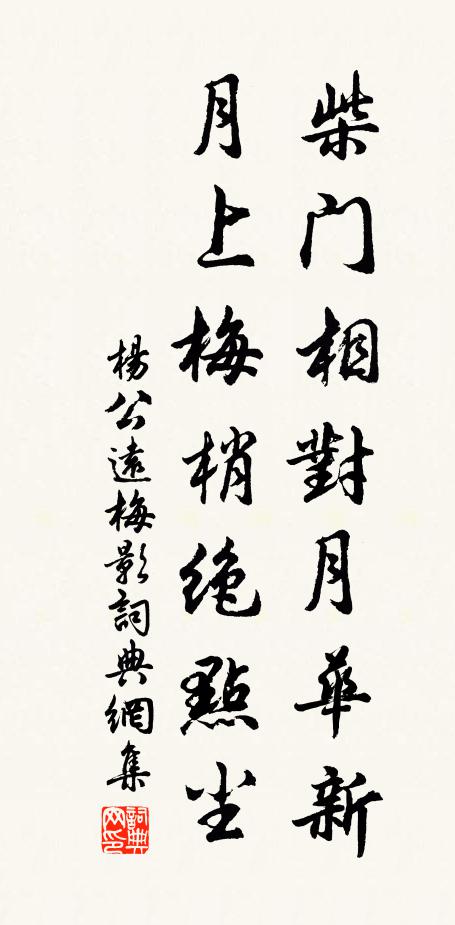 柴門相對月華新
月上梅梢絶點尘
楊公遠梅影詞典網集
詞典网印